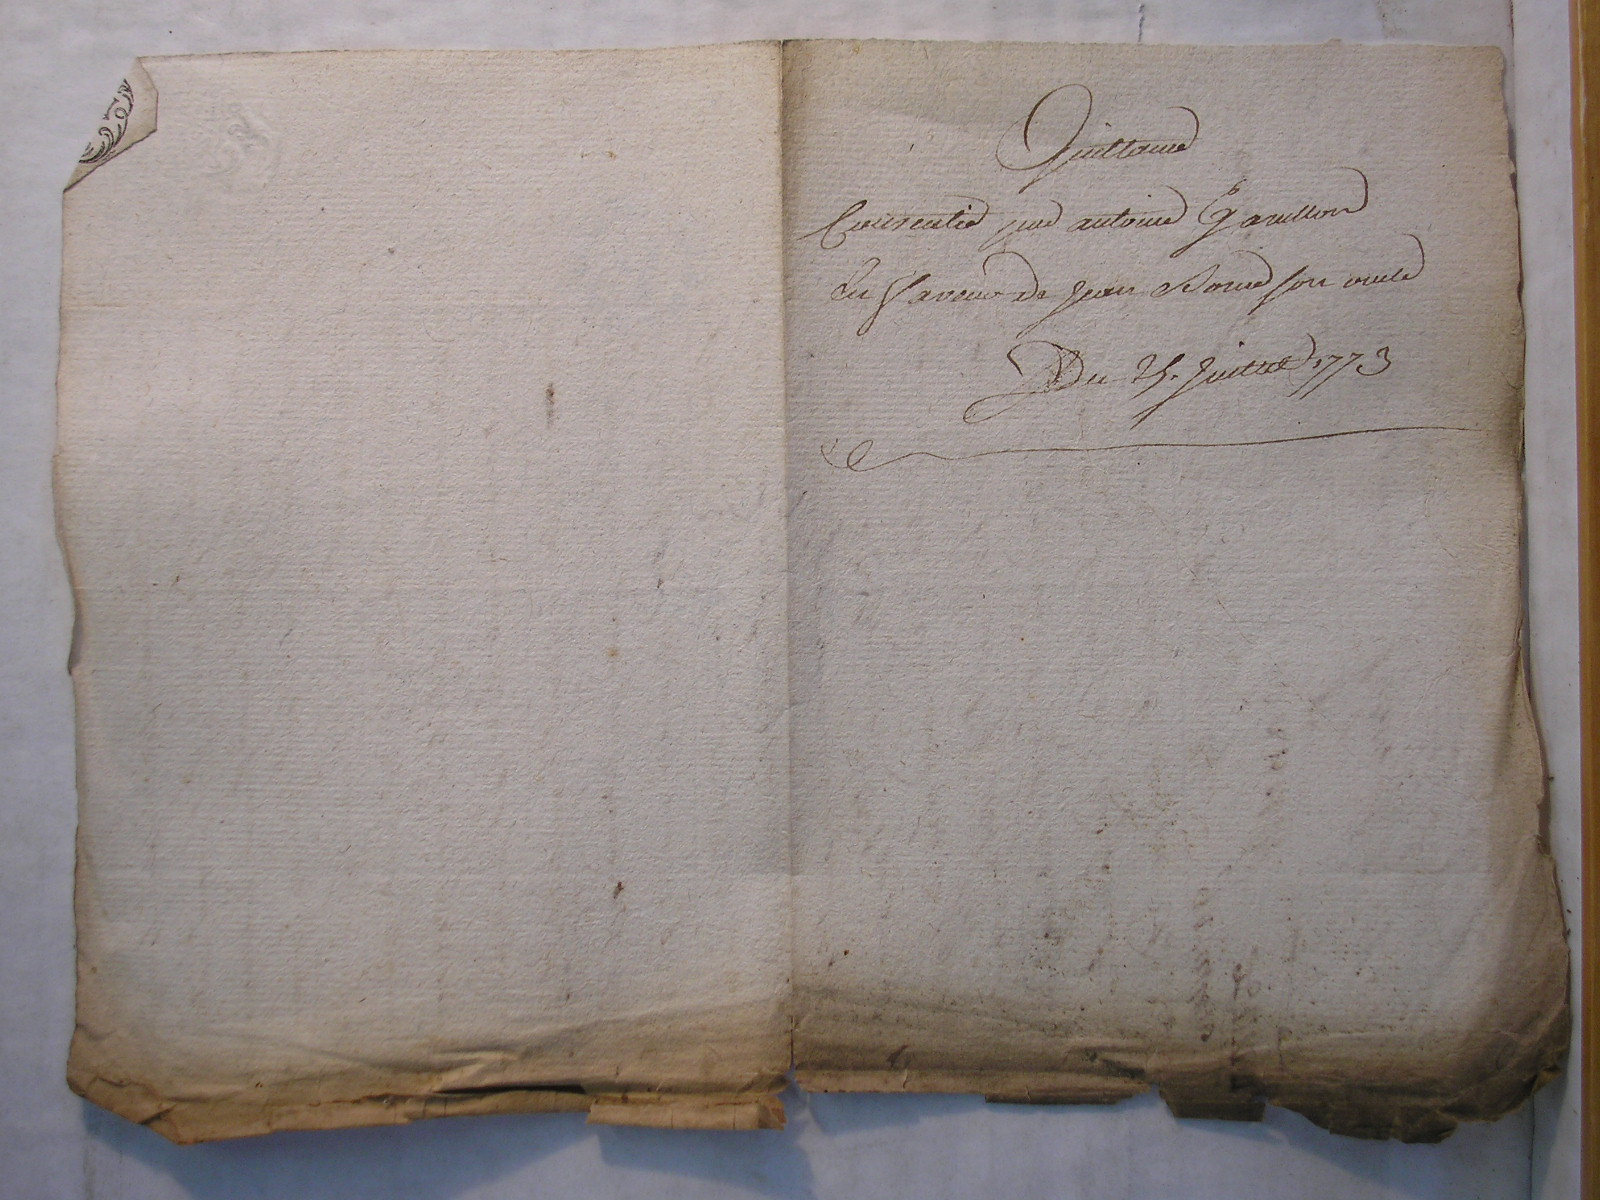 Quittance
Consentie par antoine Gamillon
En faveur de Jean Borne son oncle
Du 25. Juillet 1773